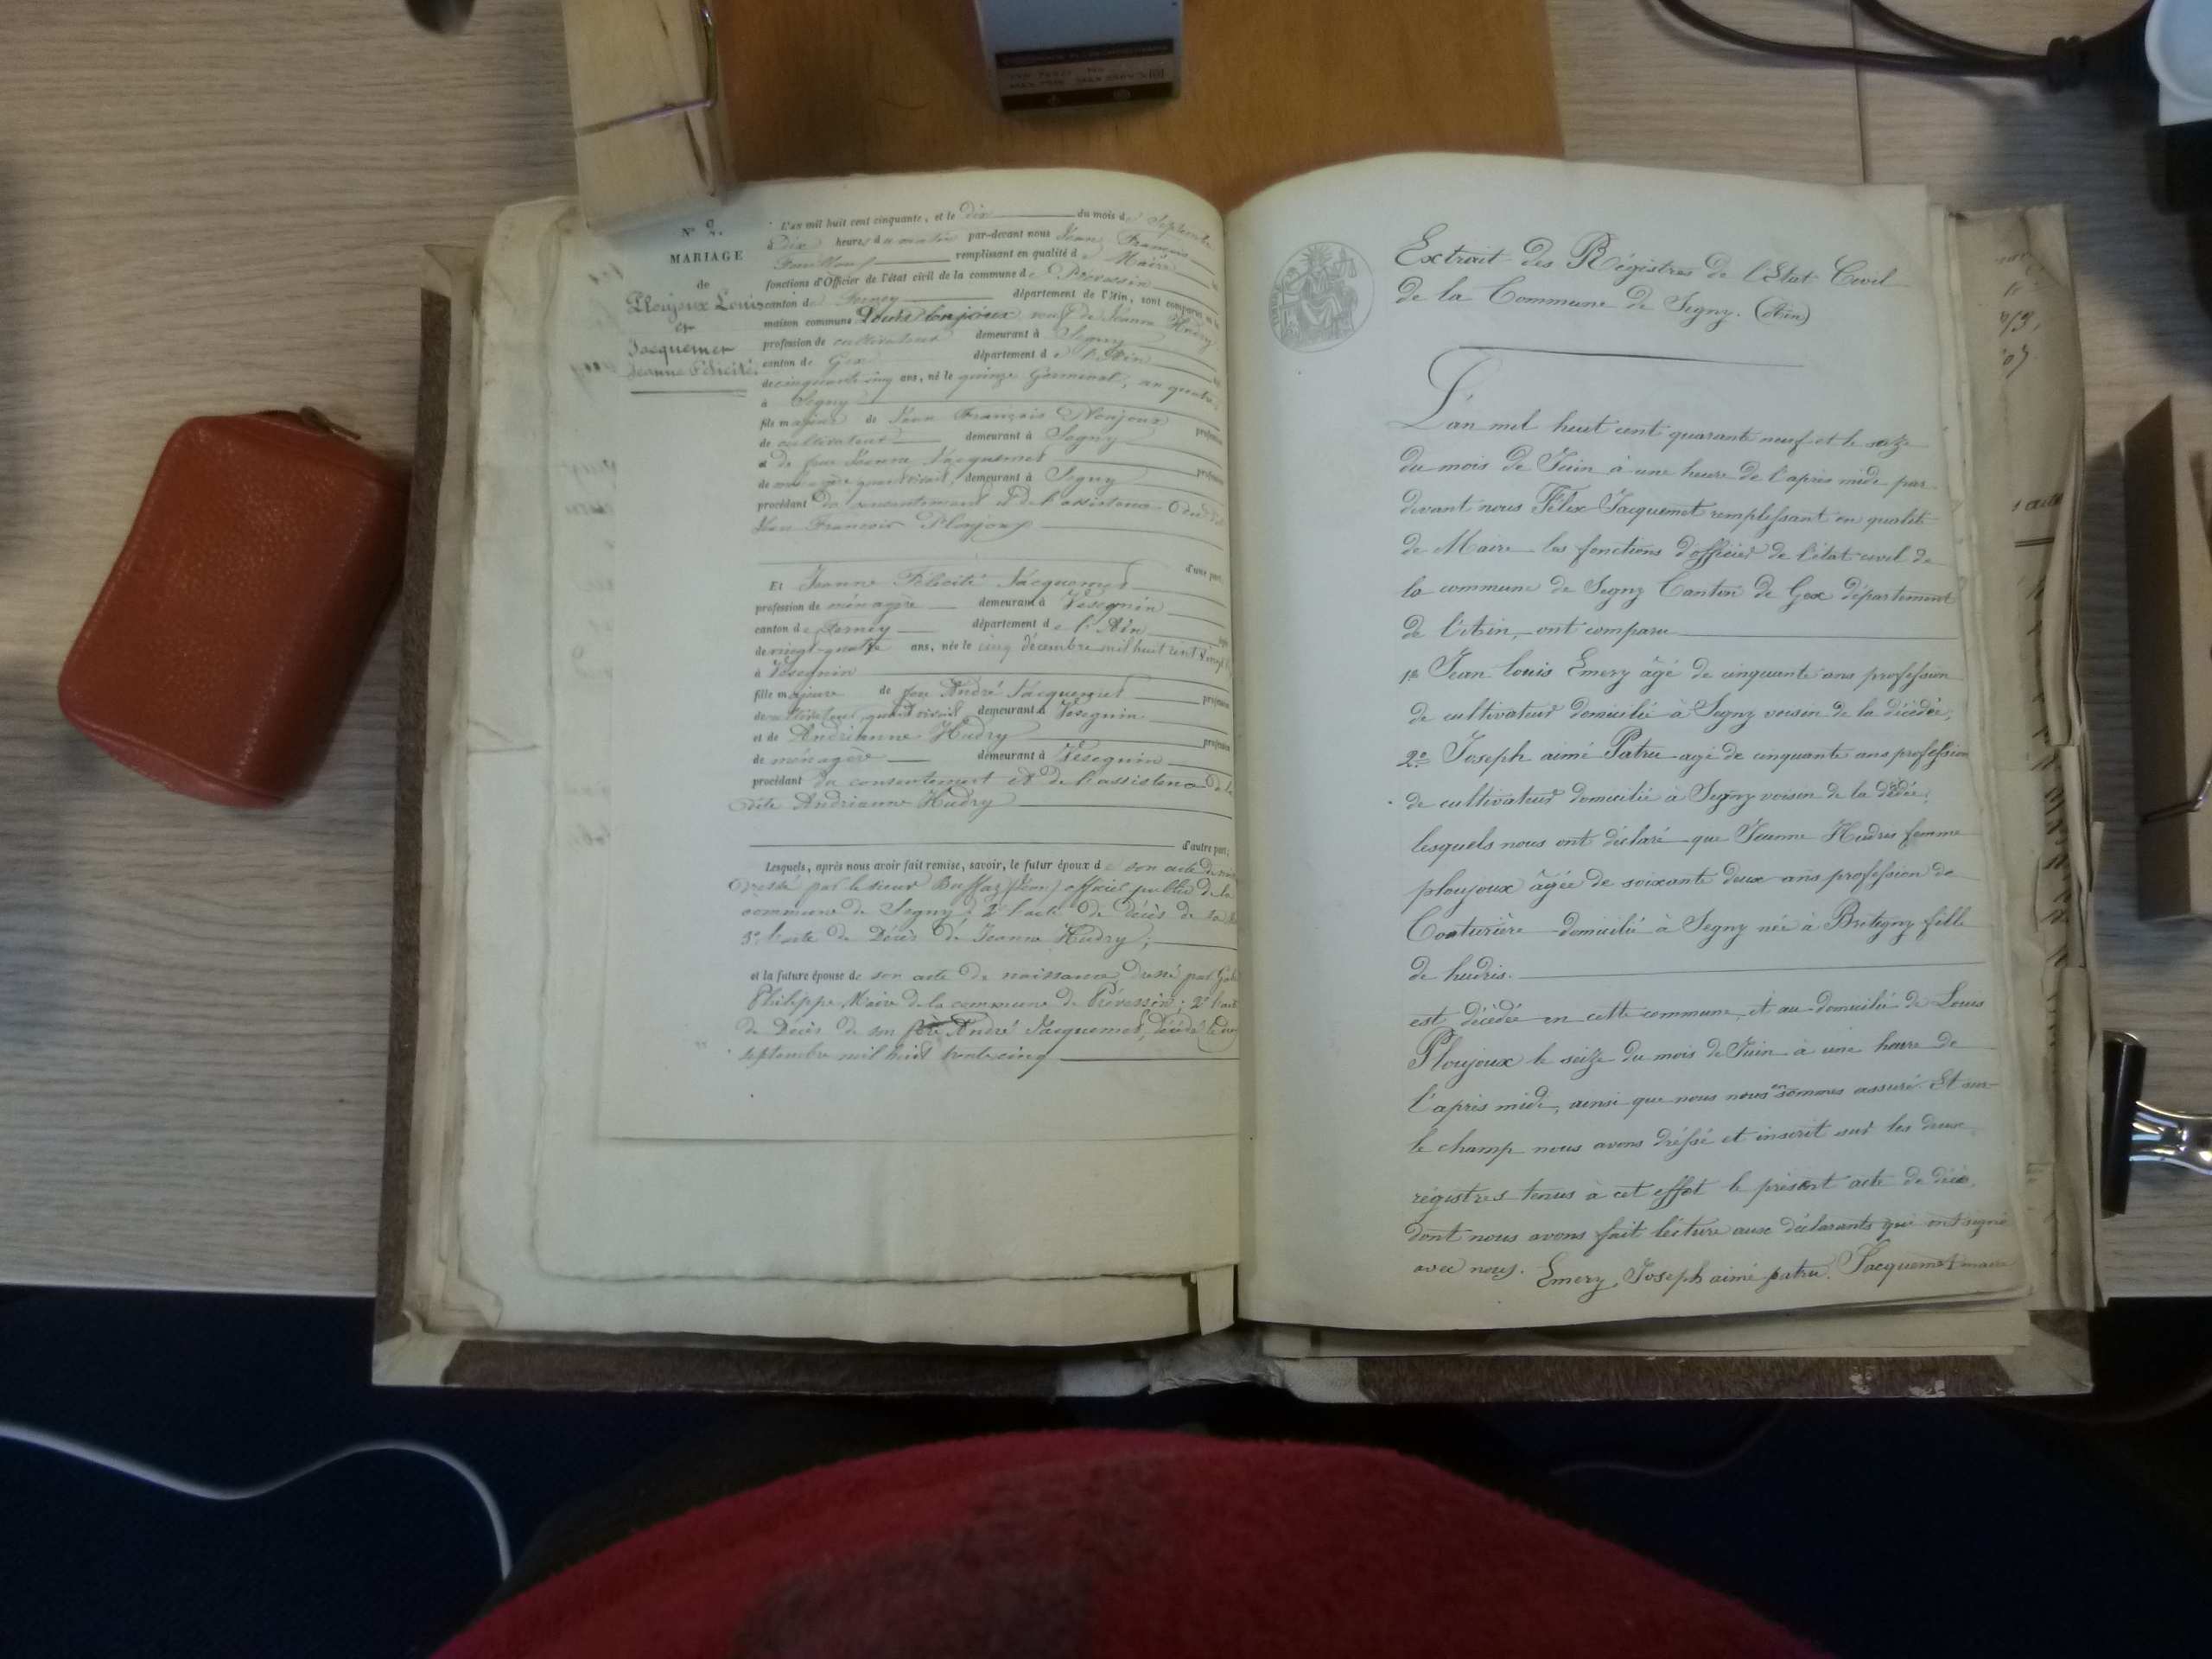 N° 2.
MARIAGE
de
Ploujoux Louis
et
Jacquemet
Jeanne Félicité.
L'an mil huit cent cinquante, et le dix du mois de Septembre
à dix heures du matin par-devant nous Jean François
remplissant en qualité de Maire les
fonctions d'Officier de l'état civil de la commune de Prevessin
canton de Ferney département de l'Ain, sont comparus en la
maison commune Louis Ploujoux veuf de Jeanne Hudry
profession de cultivateur demeurant à Segny
canton de Gex département de l'Ain
de cinquante cinq ans, né le quinze Germinal, an quatre
à Segny
fils majeur de Jean François Ploujoux profession
de cultivateur demeurant à Segny
et de feue Jeanne Jacquemet profession
de ménagère quand vivait, demeurant à Segny
procédant du consentement et de l'assistance dudit
Jean François Ploujoux
d'une part;
Et Jeanne Félicité Jacquemet
profession de ménagère demeurant à Vésegnin
canton de Ferney département de l'Ain
de vingt-quatre ans, née le cinq décembre mil huit cent vingt
à Vésegnin
fille majeure de feu André Jacquemet profession
de cultivateur quand vivait demeurant à Vésegnin
et de Andrianne Hudry profession
de ménagère demeurant à Vésegnin
procédant du consentement et de l'assistance de la
dite Andrianne Hudry
d'autre part;
Lesquels, après nous avoir fait remise, savoir, le futur époux de son acte de
dressé par le sieur Buffaz (Léon) officier public de la
commune de Segny; 2° l'acte de décès de sa
3° l'acte de Décès de Jeanne Hudry;
et la future épouse de son acte de naissance dressé par
Philippe Maire de la commune de Prévessin; 2° l'acte
de Décès de son père André Jacquemet, décédé le
septembre mil huit trente cinq
Extrait des Régistres de l'Etat Civil
de la Commune de Segny. (Ain)
L'an mil huit cent quarante neuf et le seize
du mois de Juin à une heure de l'après midi par
devant nous Félix Jacquemet remplissant en qualité
de Maire les fonctions d'officier de l'état civil de
la commune de Segny Canton de Gex département
de l'Ain, ont comparu
1° Jean Louis Emery âgé de cinquante ans profession
de cultivateur domicilié à Segny voisin de la décédée,
2° Joseph aimé Patru agé de cinquante ans profession
de cultivateur domicilié à Segny voisin de la dédée,
lesquels nous ont déclaré que Jeanne Hudris femme
ploujoux âgée de soixante deux ans profession de
Couturière domicilié à Segny née à Bretigny fille
de hudris.
est décédée en cette commune et au domicilié de Louis
Ploujoux le seize du mois de Juin à une heure de
l'après midi, ainsi que nous nous en sommes assuré. Et sur
le champ nous avons dréssé et inscrit sur les deux
régistres tenus à cet effet le présent acte de décès,
dont nous avons fait lecture aux déclarants qui ont signé
avec nous. Emery, Joseph aimé patru. Jacquemet maire